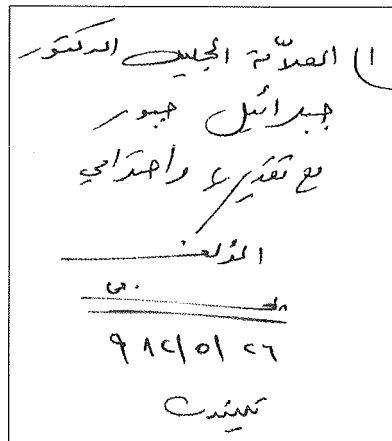 الى العلاّمة الجليل الدكتور
جبرائيل جبور
مع تقديري واحترامي
المؤلف
٩٨٢/٥/٢٦